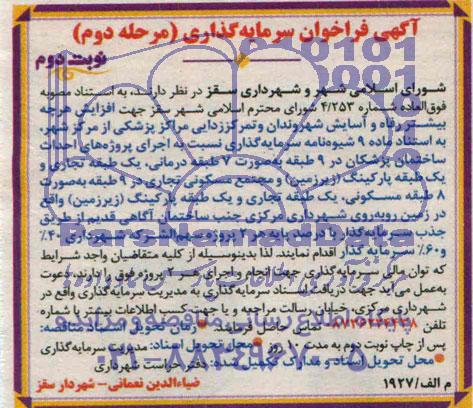 آگهی فراخوان سرمایه‌گذاری (مرحله دوم)
نوبت دوم
شورای اسلامی شهر و شهرداری سقز در نظر دارند، به استناد مصوبه
فوق‌العاده شماره ۴/۲۵۳ شورای محترم اسلامی شهر سقز جهت افزایش درجه
بیشتر رفاه و آسایش شهروندان و تمرکززدایی مراکز پزشکی از مرکز شهر،
به استناد ماده ۹ شیوه‌نامه سرمایه‌گذاری نسبت به اجرای پروژه‌های احداث
ساختمان پزشکان در ۹ طبقه به‌صورت ۷ طبقه درمانی، یک طبقه تجاری و
یک طبقه پارکینگ (زیرزمین) و مجتمع مسکونی تجاری در ۹ طبقه به‌صورت
۸ طبقه مسکونی، یک طبقه تجاری و یک طبقه پارکینگ (زیرزمین) واقع
در زمین روبه‌روی شهرداری مرکزی جنب ساختمان آگاهی قدیم از طریق
جذب سرمایه‌گذار با درصد پایه هر ۲ پروژه سهم‌الشرکه شهرداری ۴۰٪
و ۶۰٪ سرمایه گذار اقدام نمایند. لذا بدینوسیله از کلیه متقاضیان واجد شرایط
که توان مالی سرمایه‌گذاری جهت انجام و اجرای هر ۲ پروژه فوق را دارند، دعوت
به‌عمل می‌آید جهت دریافت اسناد سرمایه‌گذاری به مدیریت سرمایه‌گذاری واقع در
شهرداری مرکزی، خیابان رسالت مراجعه و یا جهت کسب اطلاعات بیشتر با شماره
تلفن تماس حاصل فرمایند. زمان تحویل اسناد مناقصه:
پس از چاپ نوبت دوم به مدت ۱۰ روز محل تحویل اسناد: مدیریت سرمایه‌گذاری
محل تحویل اسناد و مدارک تکمیل شده: دفتر حراست شهرداری
ضیاءالدین نعمانی - شهردار سقز
م الف/۱۹۲۷
ParsNamadData
۰۲۱-۸۸۳۴۹۶۷۰-۵